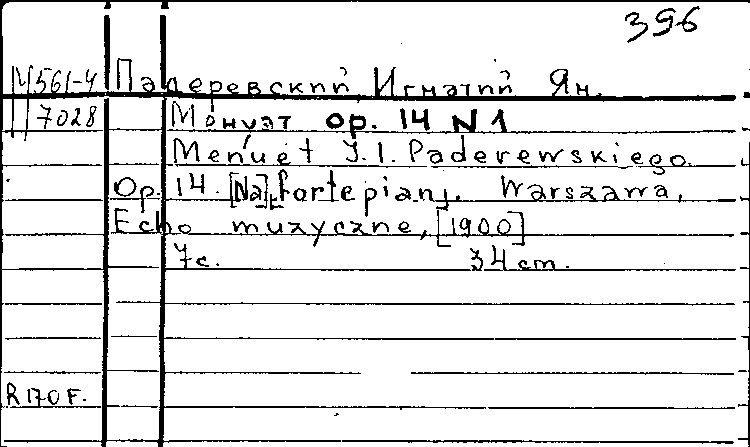 396
М 561-4 Падеревский, Игнатий Ян.
7028 Менуэт ор. 14 N 1
Menuet J. I. Paderewskiego.
Op. 14. [Na] fortepian. Warszawa,
Echo muzyczne, [1900]
7c. 34 cm.
R 170 F.